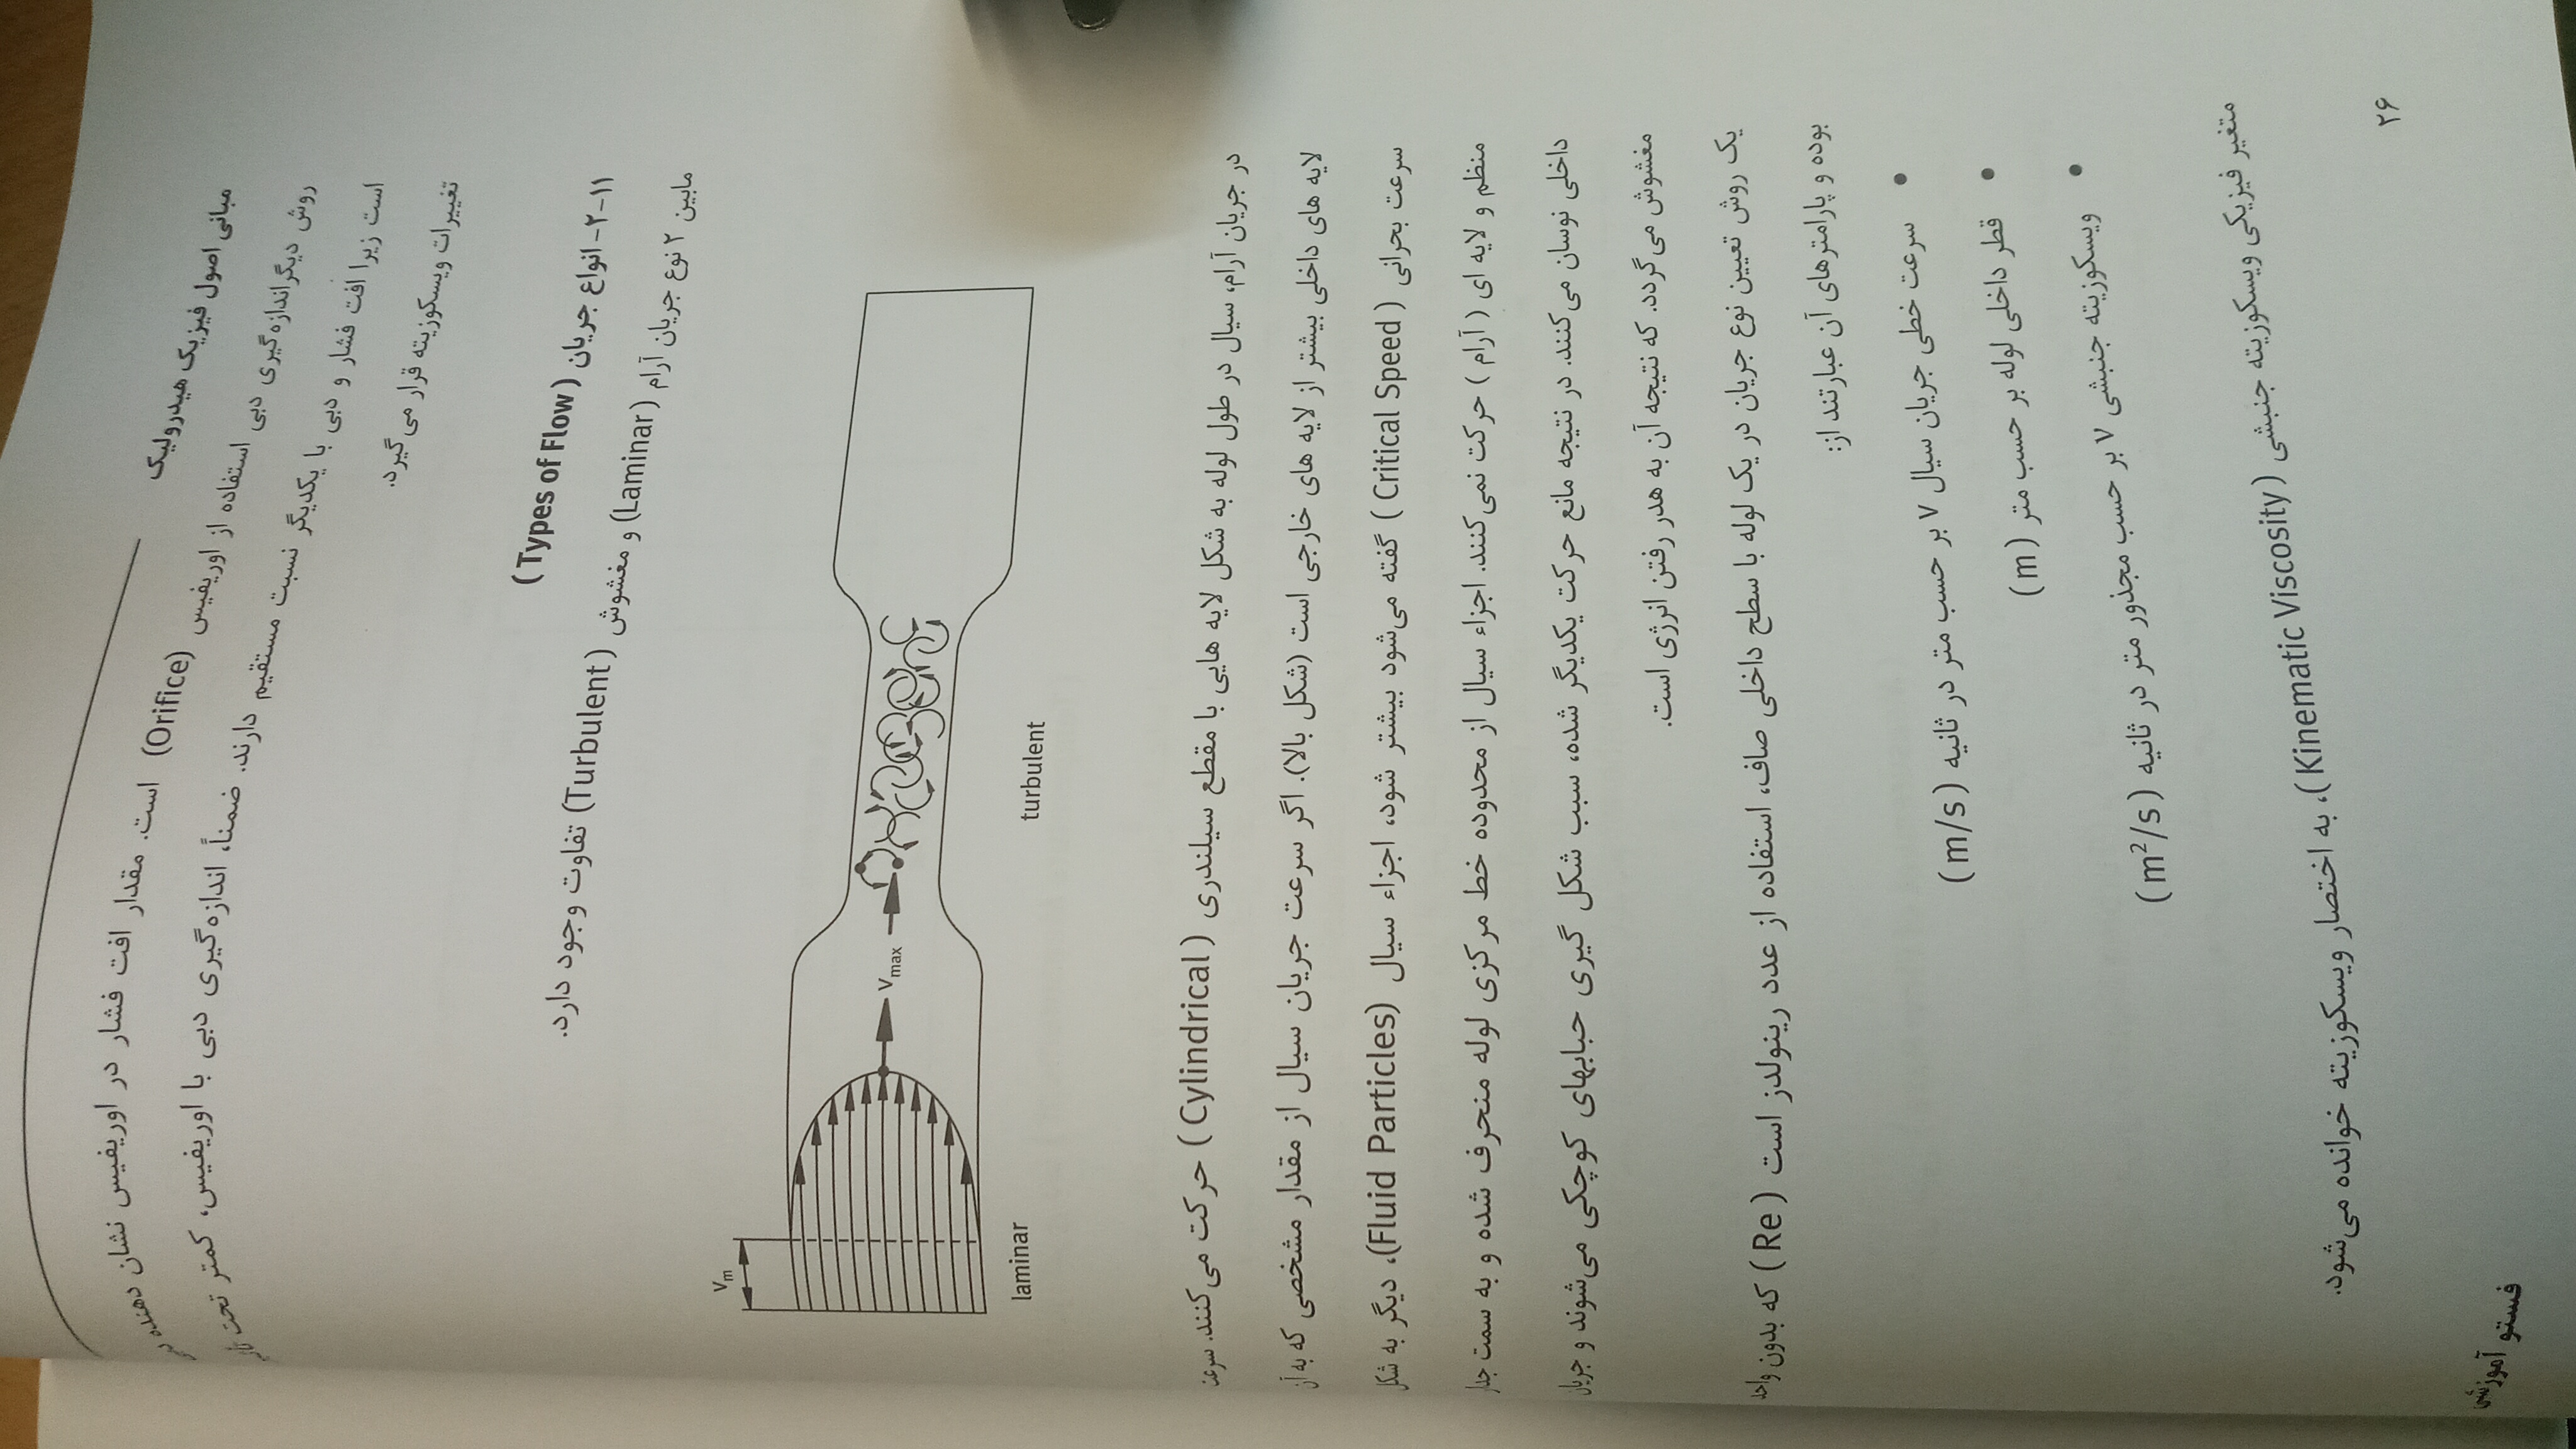 مبانی اصول فیزیک هیدرولیک
روش دیگر اندازه گیری دبی استفاده از اوریفیس (Orifice) است. مقدار افت فشار در اوریفیس نشان دهنده
است زیرا افت فشار و دبی با یکدیگر نسبت مستقیم دارند. ضمناً، اندازه گیری دبی با اوریفیس، کمتر تحت
تغییرات ویسکوزیته قرار می گیرد.
۲-۱۱- انواع جریان (Types of Flow)
مابین ۲ نوع جریان آرام (Laminar) و مغشوش (Turbulent) تفاوت وجود دارد.
vm
vmax
laminar
turbulent
در جریان آرام، سیال در طول لوله به شکل لایه هایی با مقطع سیلندری (Cylindrical) حرکت می کنند. سرعت
لایه های داخلی بیشتر از لایه های خارجی است (شکل بالا). اگر سرعت جریان سیال از مقدار مشخصی که به آن
سرعت بحرانی (Critical Speed) گفته می شود بیشتر شود، اجزاء سیال (Fluid Particles)، دیگر به شکل
منظم و لایه ای (آرام) حرکت نمی کنند. اجزاء سیال از محدوده خط مرکزی لوله منحرف شده و به سمت جدار
داخلی نوسان می کنند. در نتیجه مانع حرکت یکدیگر شده، سبب شکل گیری حبابهای کوچکی می شوند و جریان
مغشوش می گردد. که نتیجه آن به هدر رفتن انرژی است.
یک روش تعیین نوع جریان در یک لوله با سطح داخلی صاف، استفاده از عدد رینولدز است (Re) که بدون واحد
بوده و پارامترهای آن عبارتند از:
• سرعت خطی جریان سیال v بر حسب متر در ثانیه (m/s)
• قطر داخلی لوله بر حسب متر (m)
• ویسکوزیته جنبشی ν بر حسب مجذور متر در ثانیه (m²/s)
متغیر فیزیکی ویسکوزیته جنبشی (Kinematic Viscosity)، به اختصار ویسکوزیته خوانده می شود.
۲۶
فستو آموزشی